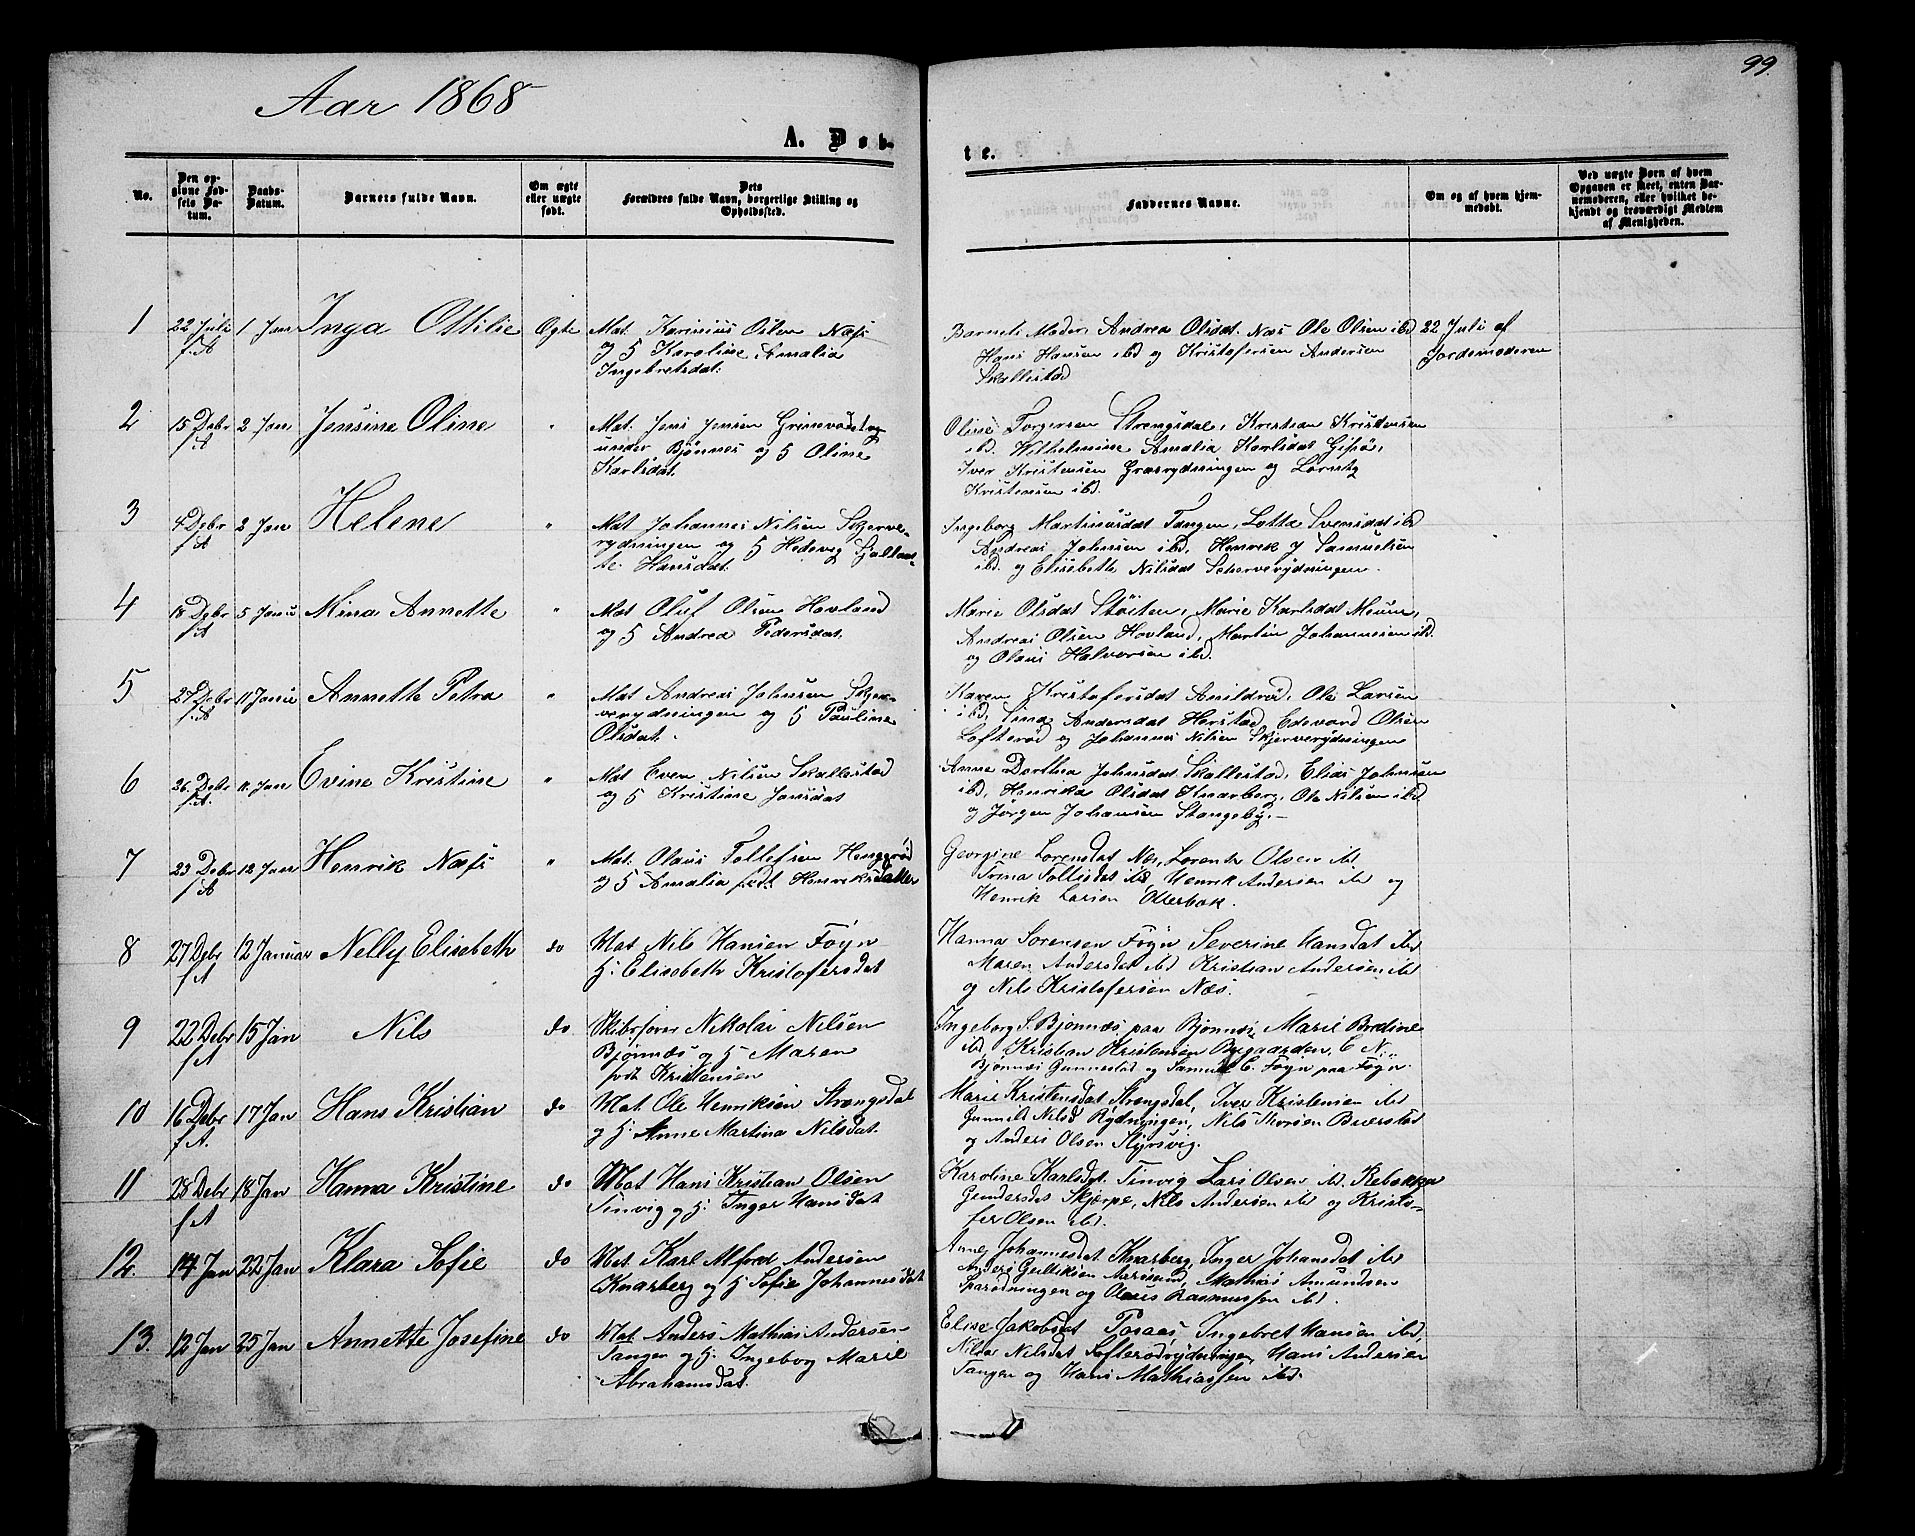 99.
Aar 1868
A. Døb-
te.
No.
Den op-
givne Fød-
sels Da-
tum.
Daabs-
Datum.
Barnets fulde Navn.
Om ægte
eller uægte
født.
Dets
Forældres fulde Navn, borgerlige Stilling og
Opholdssted.
Faddernes Navne.
Om og af hvem hjem-
medøbt.
Ved uægte Børn af hvem
Opgaven er skeet, enten Bar-
nemoderen, eller hvilket be-
kjendt og troværdigt Medlem
af Menigheden.
1 22 Juli 1 Jan Inga Ottilie Ægte Mat. Karinius Olsen Næss
f. A og H Karoline Amalia
Ingebretsdat.
Barnets Moder, Andrea Olsdat. Næs Ole Olsen ibd 22 Juli af
Hans Hansen ibd og Kristofersen Andersen Jordemoderen
Skallestad
2 15 Debr 2 Jan Jensine Oline " Mat. Jens Jensen
f A under Bjønnes og H Oline
Karlsdat.
Oline Torgersen Strengsdal, Kristian Kristensen
ibd. Wilhelmine Amalia Karlsdat Gipø,
Iver Kristensen Græsrydningen og Lorents
Kristensen ibd.
3 4 Debr 2 Jan Helene " Mat Johannes Nilsen Skjerve-
f A rydningen og H Hedevig
te Hansdat.
Ingeborg Martinusdat Tangen, Lotte Svensdat ibd
Andreas Johnsen ibd, Henrik J Samuelsen
ibd. og Elisebeth Nilsdat Skjerverydningen.
4 18 Debr 5 Janu Mina Annette " Mat Oluf Olsen Hovland
f A og H Andrea Pedersdat.
Marie Olsdat Støiten, Marie Karlsdat Meum,
Andreas Olsen Hovland, Martin Johannesen ibd.
og Olaus Halvorsen ibd.
5 27 Debr 11 Janu Annette Petra " Mat Andreas Johnsen Skjer-
f. A verydningen og H Pauline
Olsdat.
Karen Kristofersdat Arildrød, Ole Larsen
ibd, Sina Andersdat Harstad, Edevard Olsen
Lofterød og Johannes Nilsen Skjerverydningen
6 26 Debr 11 Jan Evine Kristine " Mat Even Nilsen Skallestad
f A. og H Kristine Jonsdat
Anne Dorthea Johnsdat Skallestad, Elias Johnsen
ibd, Henrika Olsdat Knarberg, Ole Nilsen ibd
og Jørgen Johansen Stangeby. —
7 23 Debr 12 Jan Henrik Næss " Mat. Olaus Tollefsen Henggrød
f A og H Amalia født Henriksdatter
Georgine Lorensdat Næs, Lorents Olsen ibd.
Trina Tollefsdat ibd, Henrik Andersen ibd og
Henrik Larsen Ollerbak.
8 27 Debr 12 Januar Nelly Elisebeth do Mat Nils Hansen Føyn
f A H: Elisebeth Kristofersdat
Hanna Sorensen Føyn Severine Hansdat ibd
Maren Andersdat ibd Kristian Andersen ibd
og Nils Kristofersen Næs.
9 22 Debr 15 Jan Nils do. Skibsfører Nikolai Nilsen
f A Bjønnæs og H Maren
født Kristensen
Ingeborg S. Bjønnæs paa Bjønnæs Marie Bredine
ibd, Kristian Kristensen Bregaarden, C N.
Bjønnæs Gunnestad og Samuel C. Føyn paa Føyn.
10 16 Debr 17 Jan Hans Kristian do Mat Ole Henriksen Strengsdal
f A. og H: Anne Martina Nilsdat.
Marie Kristensdat Strengsdal, Iver Kristensen ibd
Gunnild Nilsd Rydningen, Nils Thorsen Buerstad
og Anders Olsen Styrsvig.
11 28 Debr 18 Jan Hanna Kristine do Mat Hans Kristian Olsen
f A Tinvig og H: Inger Hansdat
Karoline Karlsdat. Tinvig Lars Olsen ibd. Rebekka
Gundersdat Skjerpe, Nils Andersen ibd og Kristo-
fer Olsen ibd.
12. 14 Jan 22 Jan Klara Sofie do Mat. Karl Alfred Andersen
Knarberg og H Sofie Johannesdat
Anne Johannesdat Knarberg, Inger Johansdat ibd
Anders Gulliksen Aarøsund, Mathias Amundsen
og Olaus Rasmussen ibd.
13. 12 Jan 25 Jan Annette Josefine do Mat. Anders Mathias Andersen
Tangen og H: Ingebog Marie
Abrahamsdat.
Elise Jakobsdat Toraas, Ingebret Hansen ibd,
Nilsdat Lofterødrydningen, Hans Andersen
Tangen og Hans Mathiassen ibd.